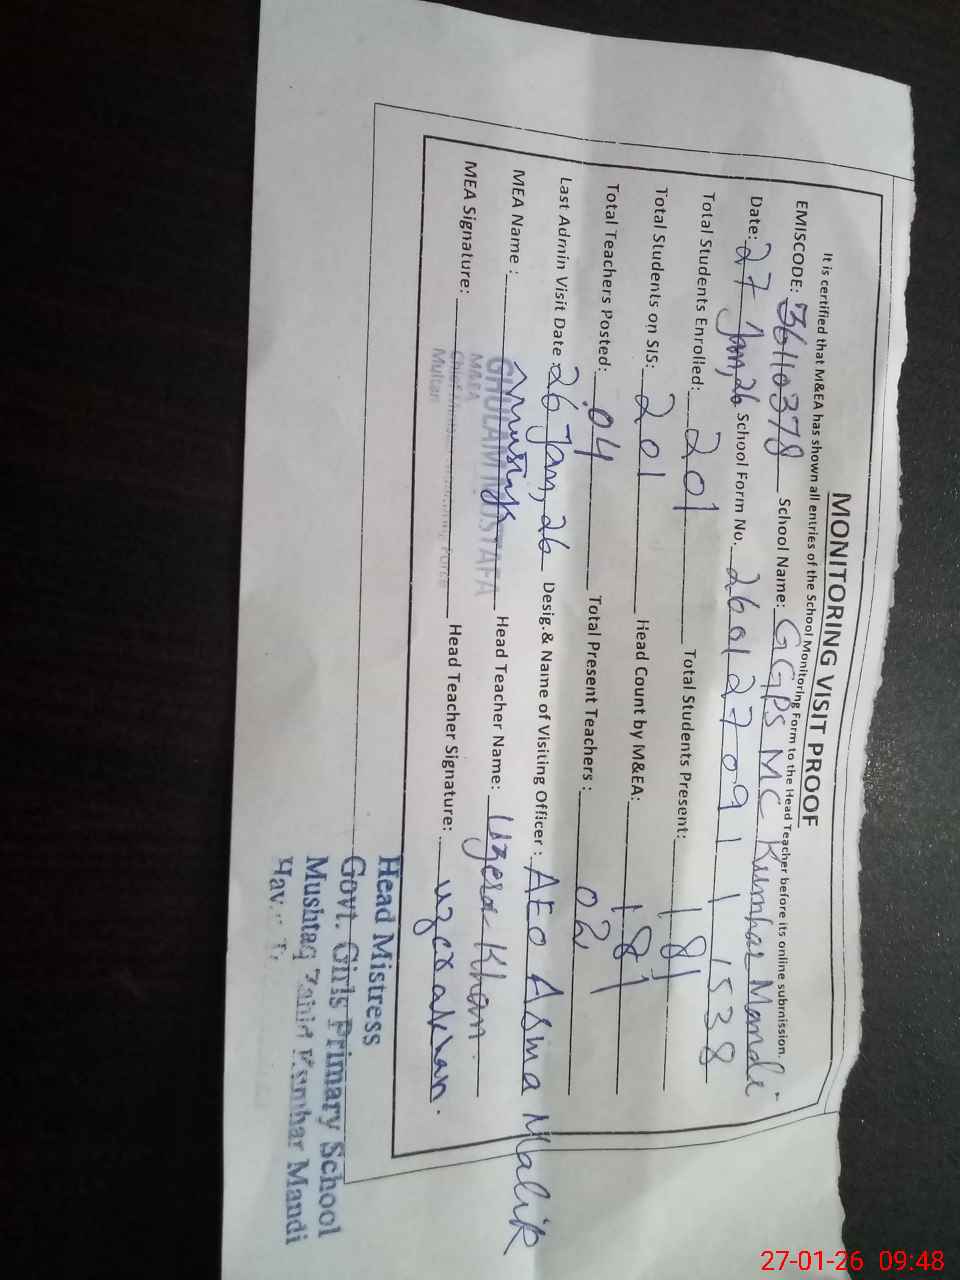 MONITORING VISIT PROOF
It is certified that M&EA has shown all entries of the School Monitoring Form to the Head Teacher before its online submission.
EMISCODE: 36110378 School Name: GGPS MC Kumhar Mandi
Date: 27 Jan, 26 School Form No. 26012709111538
Total Students Enrolled: 201 Total Students Present: 181
Total Students on SIS: 201 Head Count by M&EA: 181
Total Teachers Posted: 04 Total Present Teachers: 02
Last Admin Visit Date: 26 Jan, 26 Desig.& Name of Visiting Officer: AEO Asma Malik
MEA Name: GHULAM MUSTAFA Head Teacher Name: Uzera Khan.
MEA Signature: MAEA Head Teacher Signature: uzera khan.
Multan
Head Mistress
Govt. Girls Primary School
Mushtaq Kumhar Mandi
27-01-26 09:48